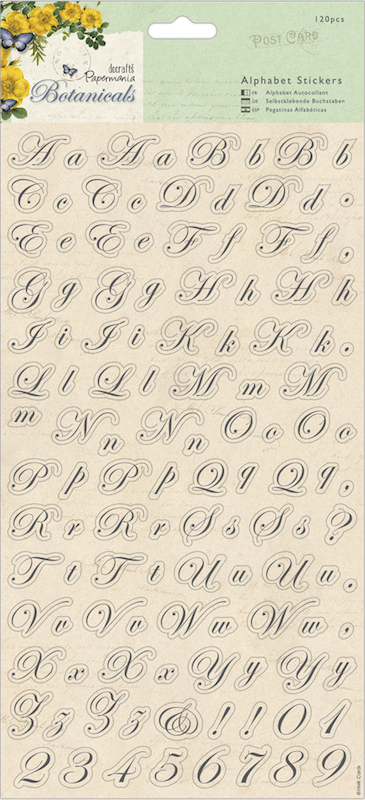 120pcs
POST CARD
docrafts
Papermania
Botanicals
Alphabet Stickers
FR Alphabet Autocollant
DE Selbstklebende Buchstaben
ESP Pegatinas Alfabéticas
A a A a B b B b
C c C c D d D d .
E e E e F f F f ,
G g G g H h H h
I i I i K k K k .
L l L l M m M
m N n N n O o O o
P p P p Q q Q q ,
R r R r S s S s ?
T t T t U u U u .
V v V v W w W w ,
X x X x Y y Y y
Z z Z z & ! ! 0 1
2 3 4 5 6 7 8 9